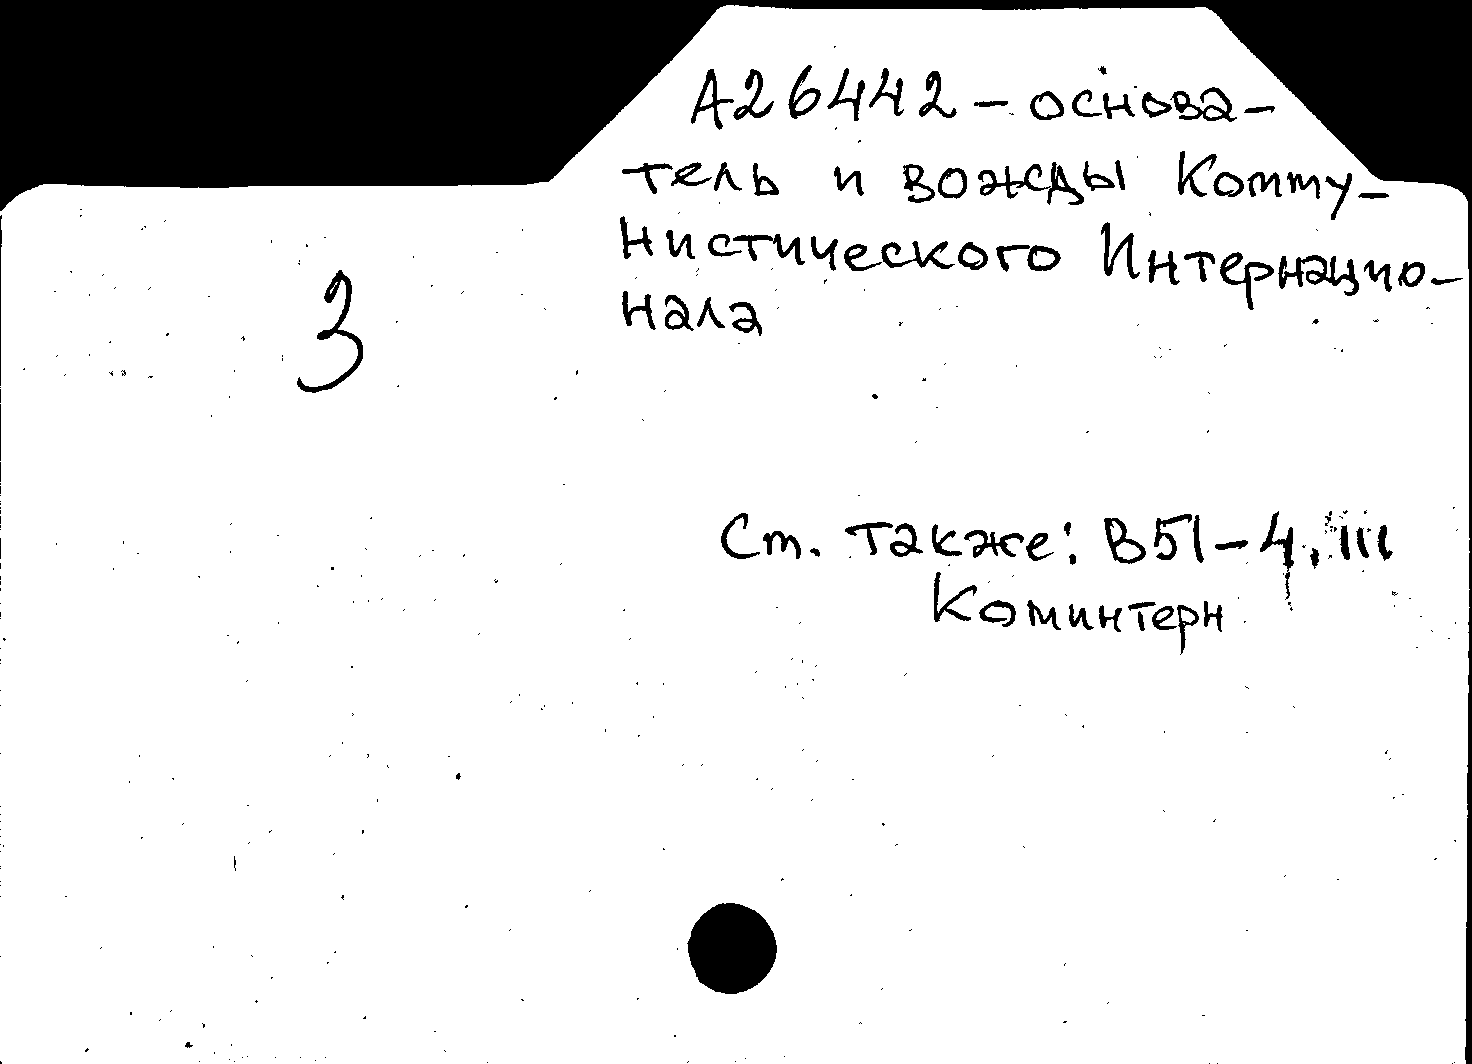 А26442 – основа-
тель и вожди Комму-
нистического Интернацио-
нала
3
См. также: В51–4. III
Коминтерн